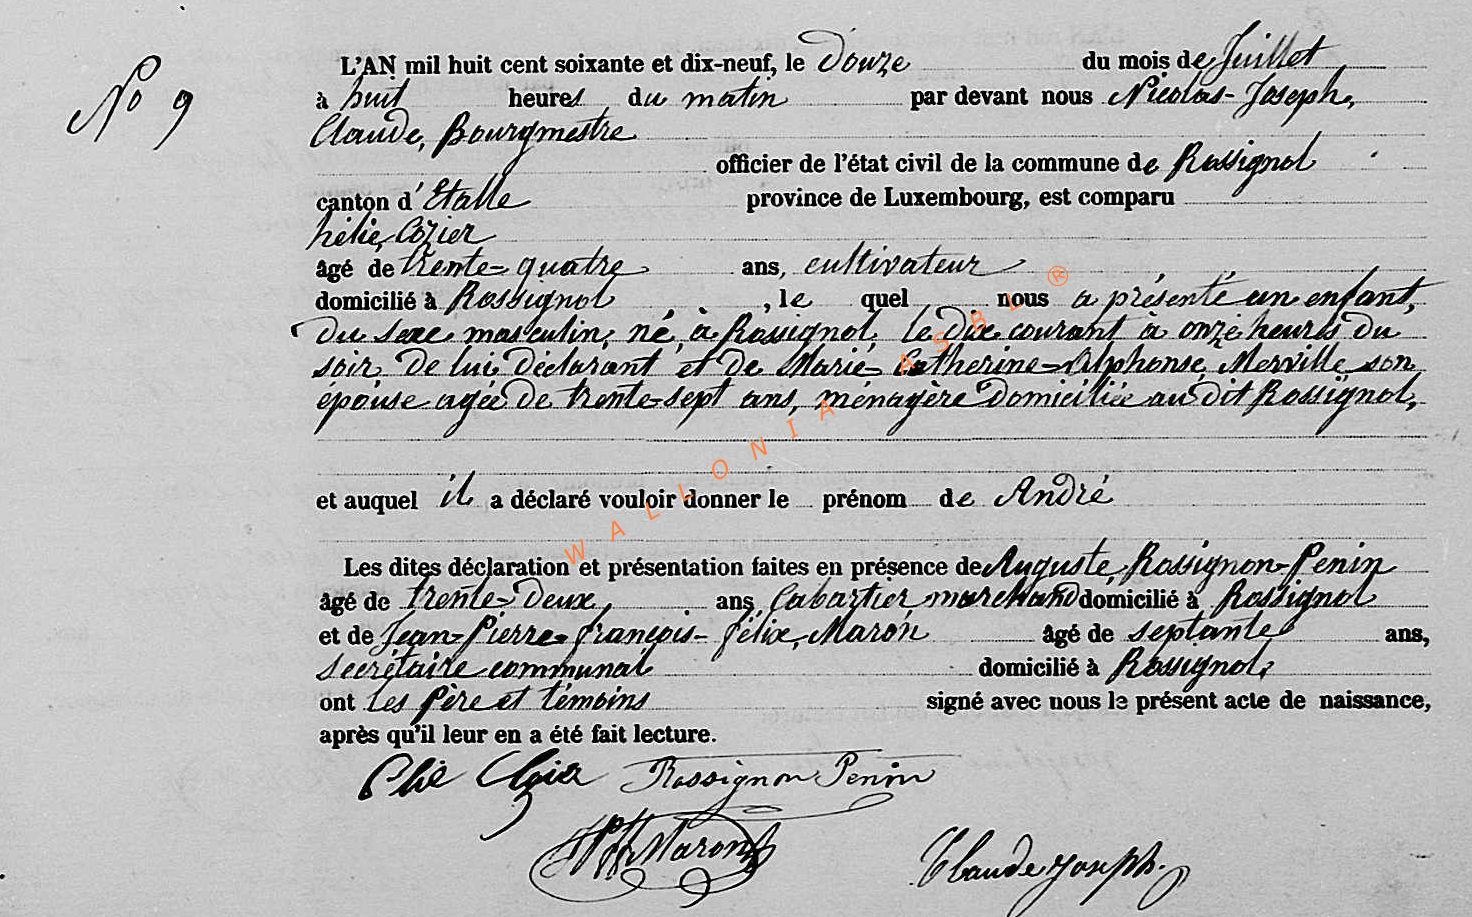 No 9
L'AN mil huit cent soixante et dix-neuf, le Douze du mois de Juillet
à huit heures du matin par devant nous Nicolas-Joseph,
Claude, Bourgmestre
officier de l'état civil de la commune de Rossignol
canton d'Etalle province de Luxembourg, est comparu
hélie, Cozier
âgé de trente-quatre ans, cultivateur
domicilié à Rossignol, le quel nous a présenté un enfant,
du sexe masculin, né, à Rossignol, le dix courant à onze heures du
soir de lui déclarant et de Marie-Catherine-Alphonse, Merville son
épouse agée de trente-sept ans, ménagère domiciliée au dit Rossignol,
et auquel il a déclaré vouloir donner le prénom de André
Les dites déclaration et présentation faites en présence de Auguste, Rossignon-Penin
âgé de trente-deux, ans, Cabartier marchand domicilié à Rossignol
et de Jean-Pierre-françois-félix, Maron âgé de septante ans,
secrétaire communal domicilié à Rossignol;
ont les Père et témoins signé avec nous le présent acte de naissance,
après qu'il leur en a été fait lecture.
Elie Rossignon Penin
Maron
Claude Joseph.
WALLONIA ASBL ®